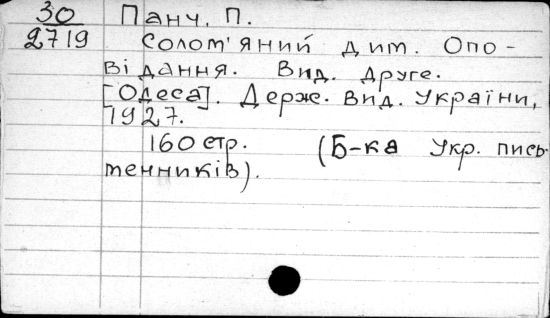 30 Панч, П.
2719 Солом'яний дим. Опо-
відання. Вид. друге.
[Одеса]. Держ. вид. України,
1927.
160 стр. (Б-ка Укр. пись-
менників).